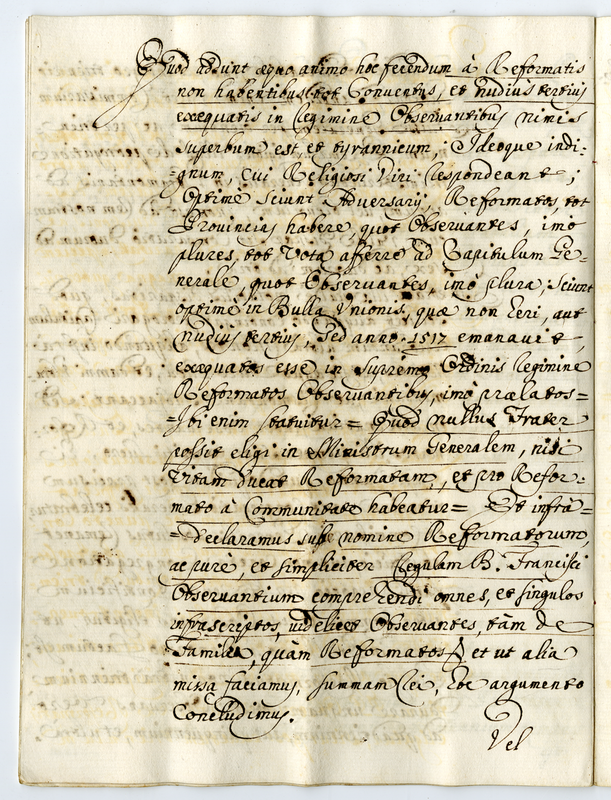 Quod addunt æquo animo hoc ferendum à Reformatis
non habentibus tot Conventus, et nudius tertius
exæquatis in Regimine Observantibus nimis
superbum est, et tyrannicum; Ideoque indi-
gnum, cui Religiosi Viri respondeant;
Optimè sciunt Adversarij, Reformatos, tot
Provincias habere, quot Observantes, imò
plures, tot Vota afferre ad Capitulum Ge-
nerale, quot Observantes, imò plura, sciunt
optimè in Bulla Unionis, quæ non heri, aut
nudius tertius, sed anno 1517 emanavit,
exæquatos esse in supremo Ordinis Regimine
Reformatos Observantibus, imò prælatos=
=Ibi enim statuitur= Quod nullus Frater
possit eligi in Ministrum Generalem, nisi
Vitam ducat Reformatam, et pro Refor-
mato à Communitate habeatur= Et infrà=
=Declaramus sub nomine Reformatorum,
ac purè, et simpliciter Regulam B. Francisci
Observantium comprehendi omnes, et singulos
infrascriptos, videlicet Observantes, tàm de
Familia, quàm Reformatos et ut alia
missa faciamus, summam Rei, hoc argumento
Concludimus.
Vel